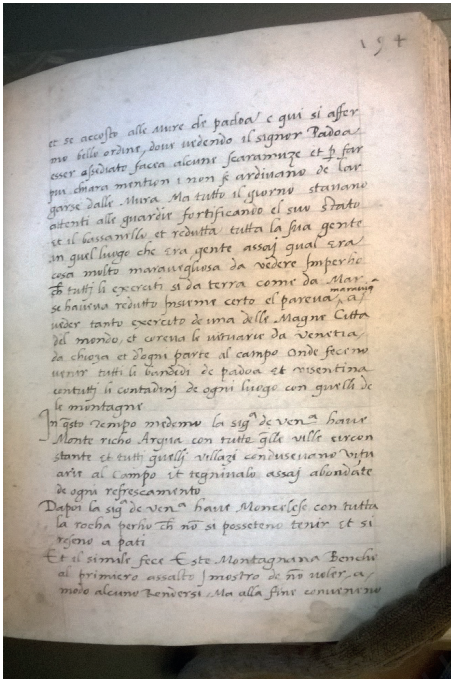 194
et se accosto alle Mure de padoa e qui si affer
mo bello ordine, dove vedendo il signor Padoa
esser assediato facea alcune scaramuze et p far
piu chiara mention i non se ardivano de lar
garse dalle Mura Ma tutto il giorno stavano
attenti alle guardie fortificando el suo stato
et il bassanello et redutta tutta la sua gente
in quel luogo che era gente assaj qual era
cosa molto maravegliosa da vedere Imperho
ch tuttj li exerciti si da terra come da Mar
se haveva redutto Insieme certo el pareva maravigᵃ a
veder tanto exercito de una delle Magne Citta
del mondo, et coreva le vetuarie da Venetia
da chioza et d'ogni parte al campo Onde feceno
venir tuttj li bandedi de padoa et visentina
con tuttj li contadinj de ogni luogo con quelli de
le montagne
In qsto tempo medemo la sigᵃ de venᵃ have
Monte richo Arqua con tutte qlle ville circon
stante et tuttj quellj villazi condusevano vitu
arie al campo et tegnivalo assaj abondate
de ogni refrescamento
Dapoi la sigᵃ de venᵃ have Moncelese con tutta
la rocha perho ch no si posseteno tenir et si
reseno a pati
Et il simile fece Este Montagnana Benche
al primiero assalto mostro de no voler, a
modo alcuno Rendersi, Ma alla fine conveneno